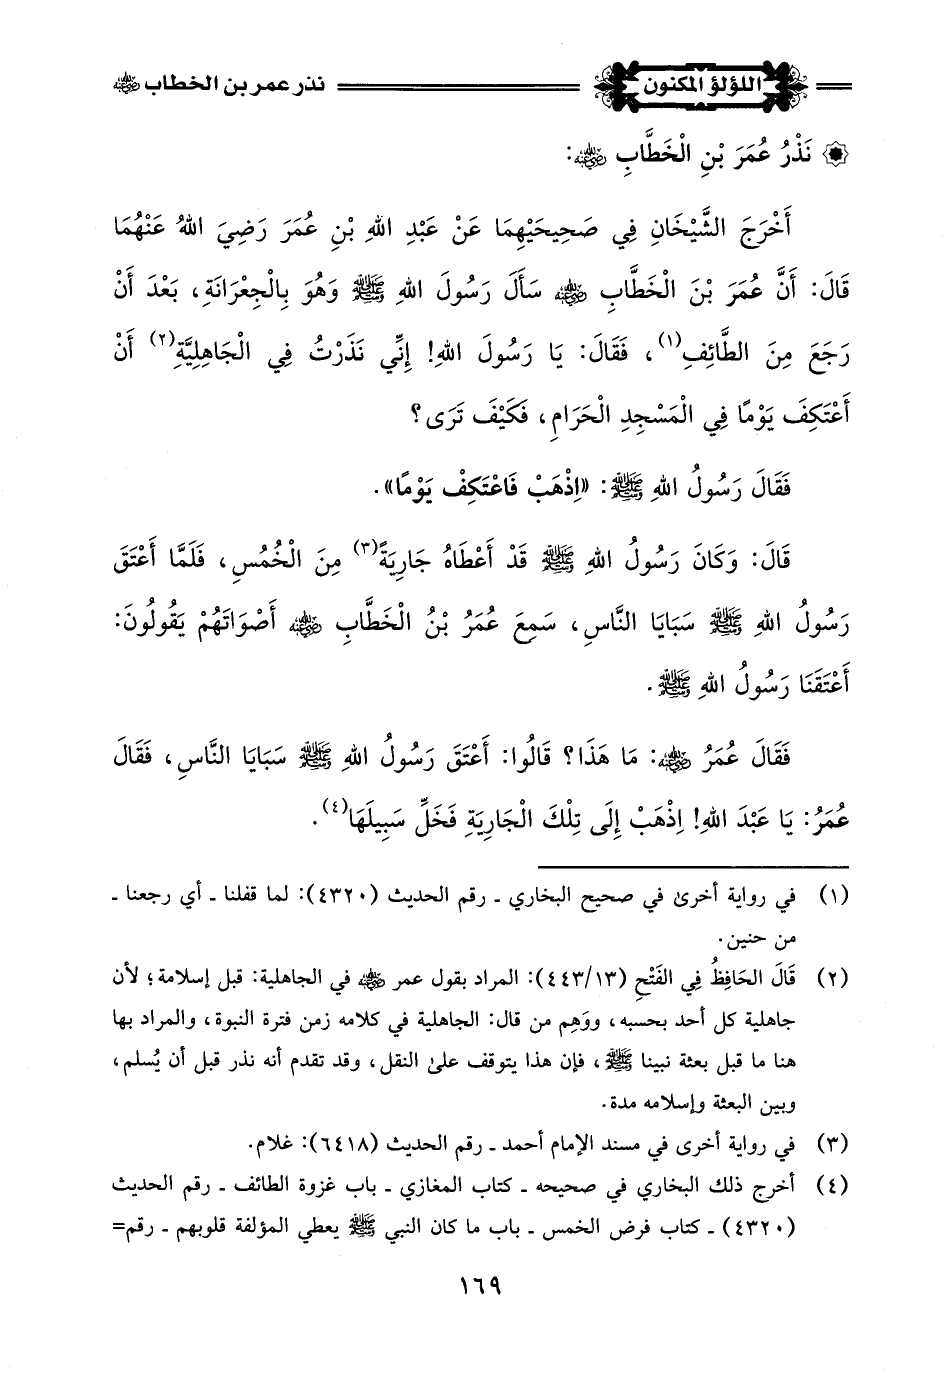 اللؤلؤ المكنون
نذر عمر بن الخطاب رضي الله عنه
نَذْرُ عُمَرَ بْنِ الْخَطَّابِ رضي الله عنه:
أَخْرَجَ الشَّيْخَانِ فِي صَحِيحَيْهِمَا عَنْ عَبْدِ اللهِ بْنِ عُمَرَ رَضِيَ اللهُ عَنْهُمَا
قَالَ: أَنَّ عُمَرَ بْنَ الْخَطَّابِ رضي الله عنه سَأَلَ رَسُولَ اللهِ ﷺ وَهُوَ بِالْجِعْرَانَةِ، بَعْدَ أَنْ
رَجَعَ مِنَ الطَّائِفِ(١)، فَقَالَ: يَا رَسُولَ اللهِ! إِنِّي نَذَرْتُ فِي الْجَاهِلِيَّةِ(٢) أَنْ
أَعْتَكِفَ يَوْمًا فِي الْمَسْجِدِ الْحَرَامِ، فَكَيْفَ تَرَى؟
فَقَالَ رَسُولُ اللهِ ﷺ: «اِذْهَبْ فَاعْتَكِفْ يَوْمًا».
قَالَ: وَكَانَ رَسُولُ اللهِ ﷺ قَدْ أَعْطَاهُ جَارِيَةً(٣) مِنَ الْخُمُسِ، فَلَمَّا أَعْتَقَ
رَسُولُ اللهِ ﷺ سَبَايَا النَّاسِ، سَمِعَ عُمَرُ بْنُ الْخَطَّابِ رضي الله عنه أَصْوَاتَهُمْ يَقُولُونَ:
أَعْتَقَنَا رَسُولُ اللهِ ﷺ.
فَقَالَ عُمَرُ رضي الله عنه: مَا هَذَا؟ قَالُوا: أَعْتَقَ رَسُولُ اللهِ ﷺ سَبَايَا النَّاسِ، فَقَالَ
عُمَرُ: يَا عَبْدَ اللهِ! اِذْهَبْ إِلَى تِلْكَ الْجَارِيَةِ فَخَلِّ سَبِيلَهَا(٤).
(١) في رواية أخرىٰ في صحيح البخاري ـ رقم الحديث (٤٣٢٠): لما قفلنا ـ أي رجعنا ـ
من حنين.
(٢) قَالَ الحَافِظُ فِي الفَتْحِ (٤٤٣/١٣): المراد بقول عمر رضي الله عنه في الجاهلية: قبل إسلامة؛ لأن
جاهلية كل أحد بحسبه، ووَهِم من قال: الجاهلية في كلامه زمن فترة النبوة، والمراد بها
هنا ما قبل بعثة نبينا ﷺ، فإن هذا يتوقف علىٰ النقل، وقد تقدم أنه نذر قبل أن يُسلم،
وبين البعثة وإسلامه مدة.
(٣) في رواية أخرى في مسند الإمام أحمد ـ رقم الحديث (٦٤١٨): غلام.
(٤) أخرج ذلك البخاري في صحيحه ـ كتاب المغازي ـ باب غزوة الطائف ـ رقم الحديث
(٤٣٢٠) ـ كتاب فرض الخمس ـ باب ما كان النبي ﷺ يعطي المؤلفة قلوبهم ـ رقم=
١٦٩